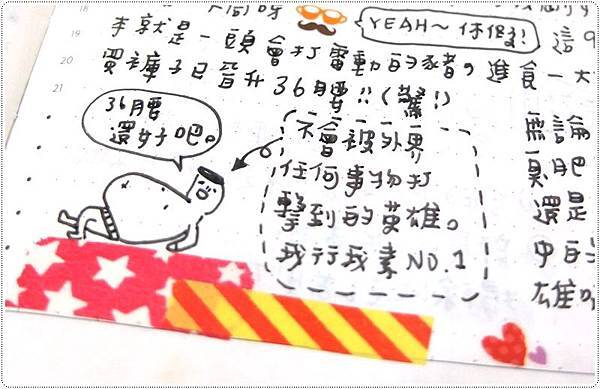 18
19
20
21
YEAH~你好!
本就是一頭會打電動的豬。進食一大
買褲子已晉升36腰!!(驚!)
36腰
還好吧。
不會被外界
任何事物打
擊到的英雄。
我行我素NO.1
這9
無論
是肥
還是
中的
雄